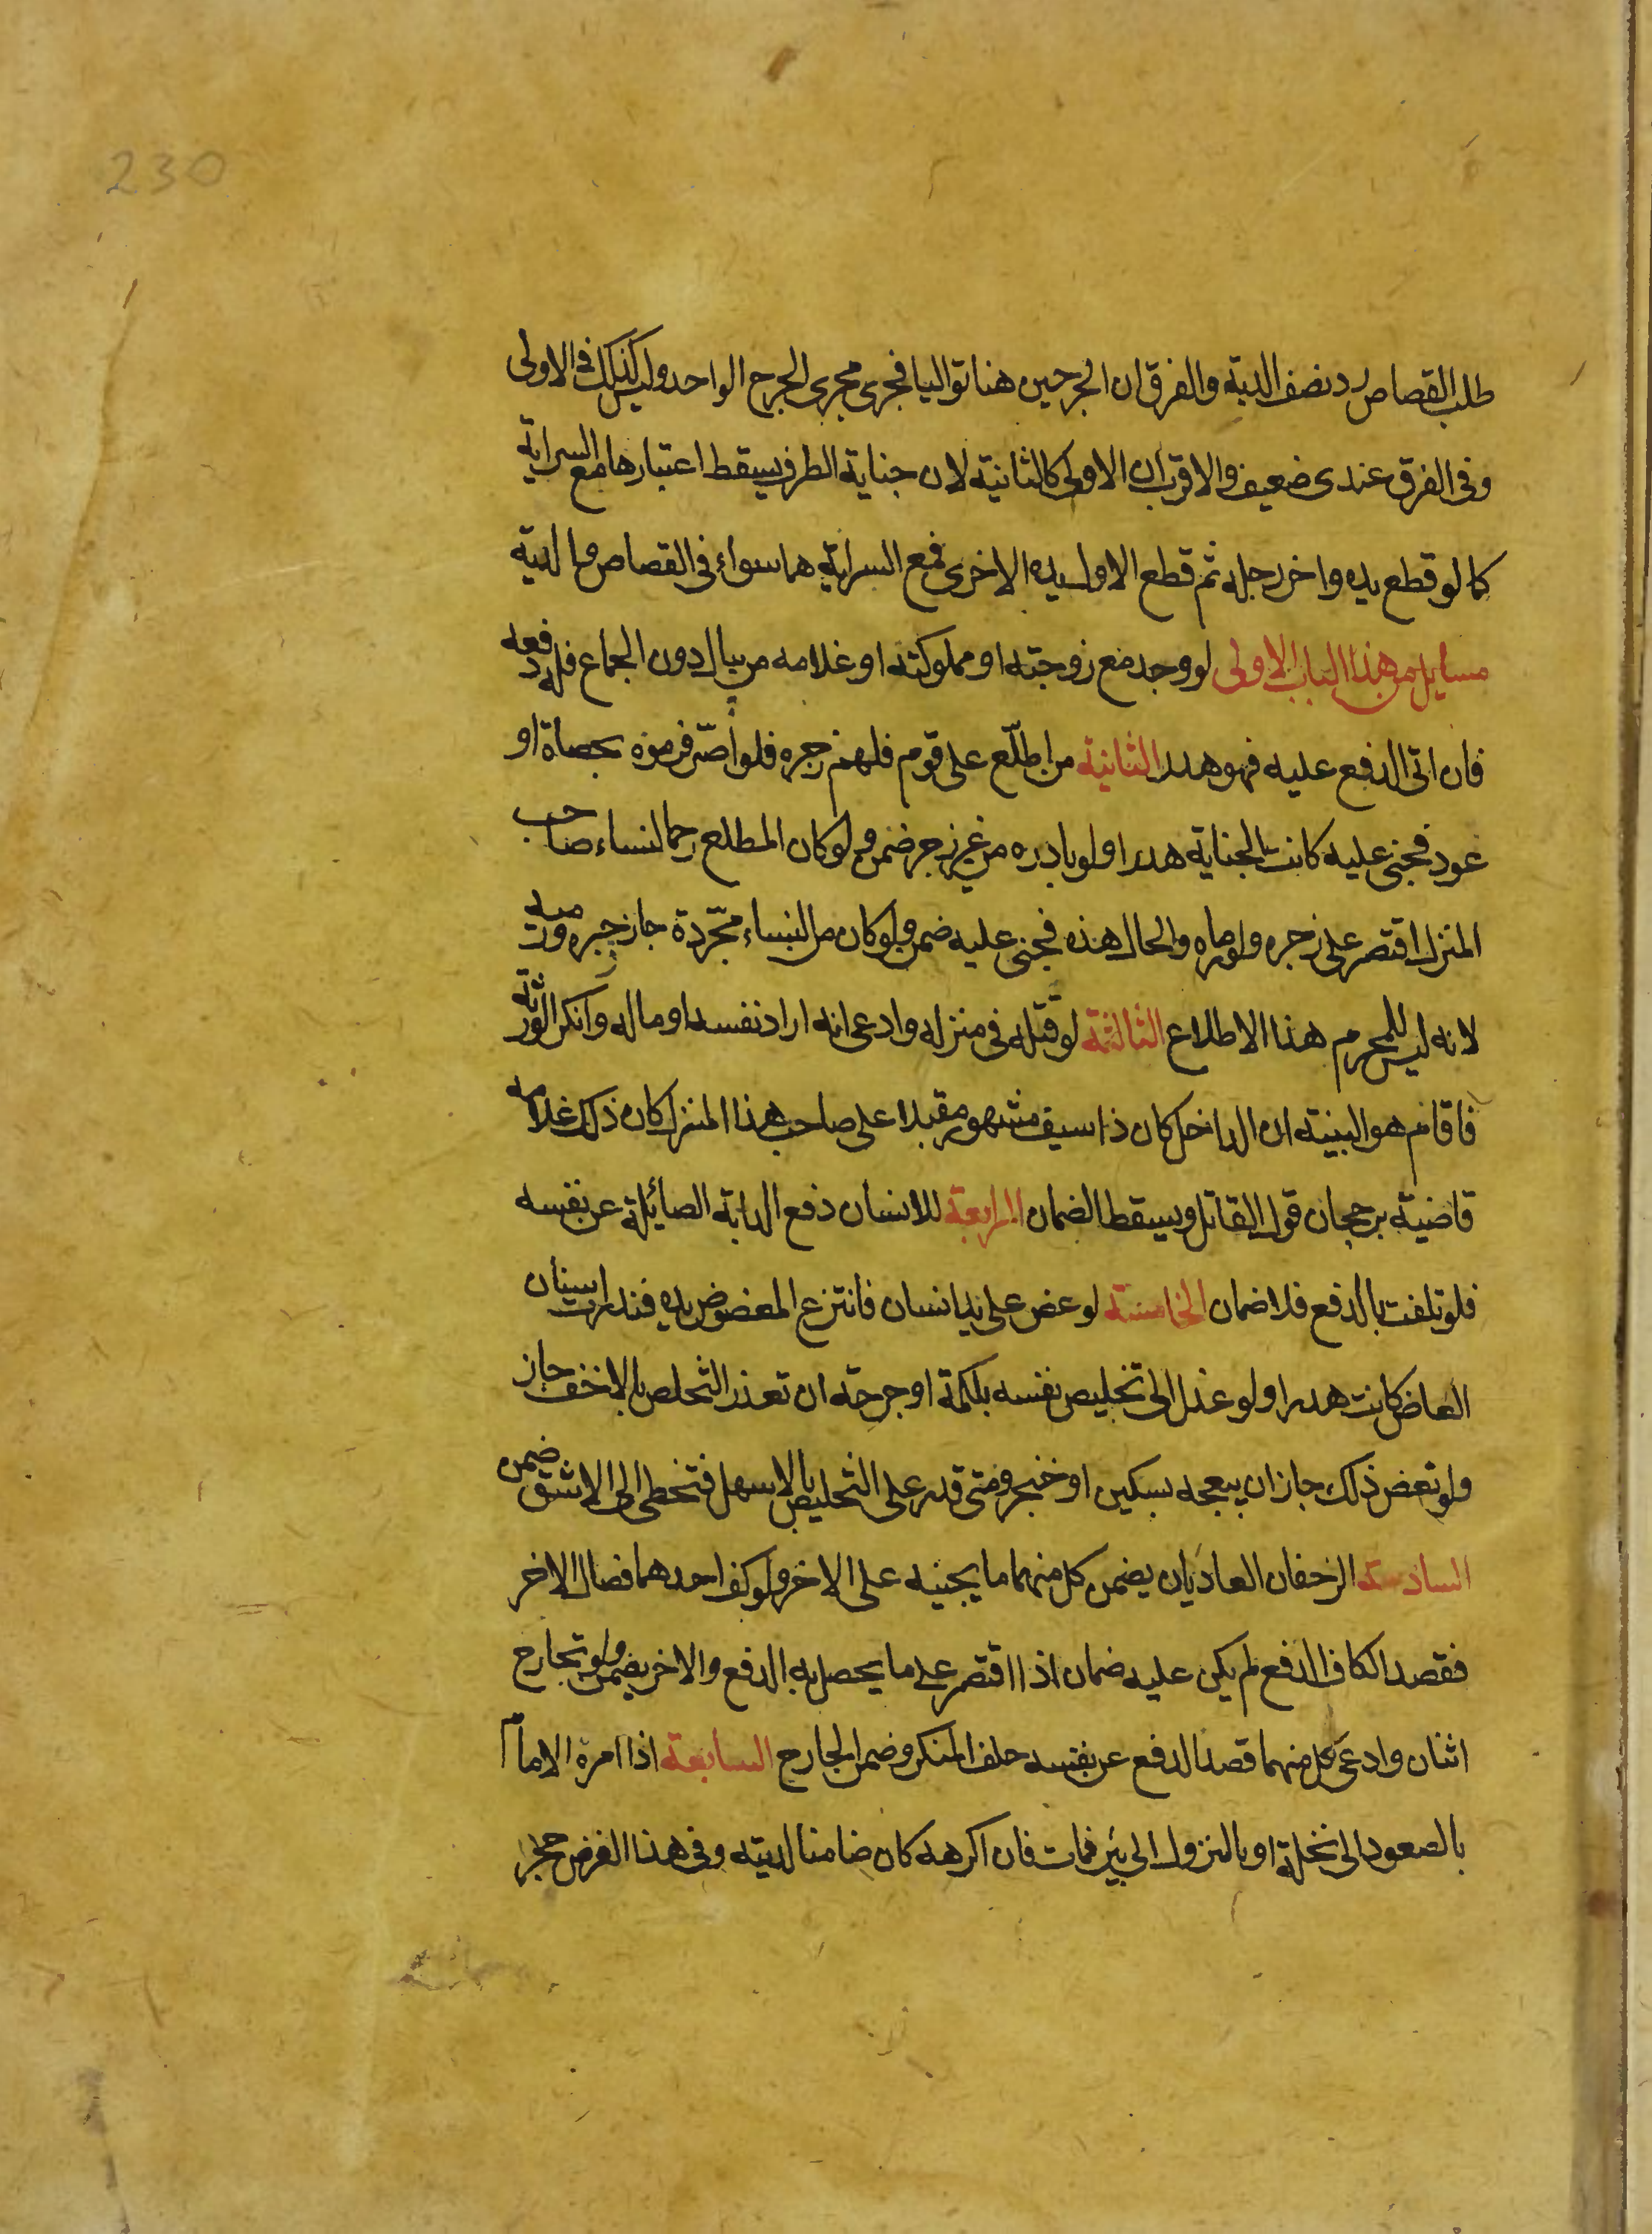 230
طلب القصاص رد نصف الدية والفرق ان الجرحين هنا تواليا فجرى مجرى الجرح الواحد وليس كذلك في الاولى
وفى الفرق عندى ضعف والاقرب ان الاولى كالثانية لان جناية الطرف يسقط اعتبارها مع السراية
كما لو قطع يده واخر رجله ثم قطع الاول يده الاخرى فمع السراية هما سواء فى القصاص والدية
مسايل من هذا الباب الاولى لو وجد مع زوجته او مملوكته او غلامه من ينال دون الجماع فله دفعه
فان اتى الدفع عليه فهو هدر الثانية من اطلّع على قوم فلهم زجره فلو اصّر فرموه بحصاة او
عود فجنى عليه كانت الجناية هدرا ولو بادره من غير زجر ضمن ولو كان المطلع رحما لنساء صاحب
المنزل اقتصر على زجره ولو رماه والحال هذه فجنى عليه ضمن ولو كان من النساء مجّردة جاز زجره ورميه
لانه ليس للمحرم هذا الاطلاع الثالثة لو قتله فى منزله وادعى انه اراد نفسه او ماله وانكر الورثة
فاقام هو البينة ان الداخل كان ذا سيف مشهور مقبلا على صاحب هذا المنزل كان ذلك علامه
قاضية برجحان قول القاتل ويسقط الضمان الرابعة للانسان دفع الدابة الصائلة عن نفسه
فلو تلفت بالدفع فلا ضمان الخامسة لو عض على يد انسان فانتزع المعضوض يده فندرت اسنان
العاض كانت هدرا ولو عدل الى تخليص نفسه بلكمة او جرحه ان تعذر التخلص بالاخف جاز
ولو تعض ذلك جاز ان يبعجه بسكين او خنجر ومتى قدر على التخليص بالاسهل فتخطى الى الاشق ضمن
السادسة الزحفان العاديان يضمن كل منهما ما يجنيه على الاخر ولو كف احدهما فصال الاخر
فقصد الكاف الدفع لم يكن عليه ضمان اذا اقتصر على ما يحصل به الدفع والاخر يضمن ولو تجارح
اثنان وادعى كل منهما قصد الدفع عن نفسه حلف المنكر وضمن الجارح السابعة اذا امره الامام
بالصعود الى نخلة او بالنزول الى بئر فمات فان اكرهه كان ضامنا لديته وفى هذا الفرض